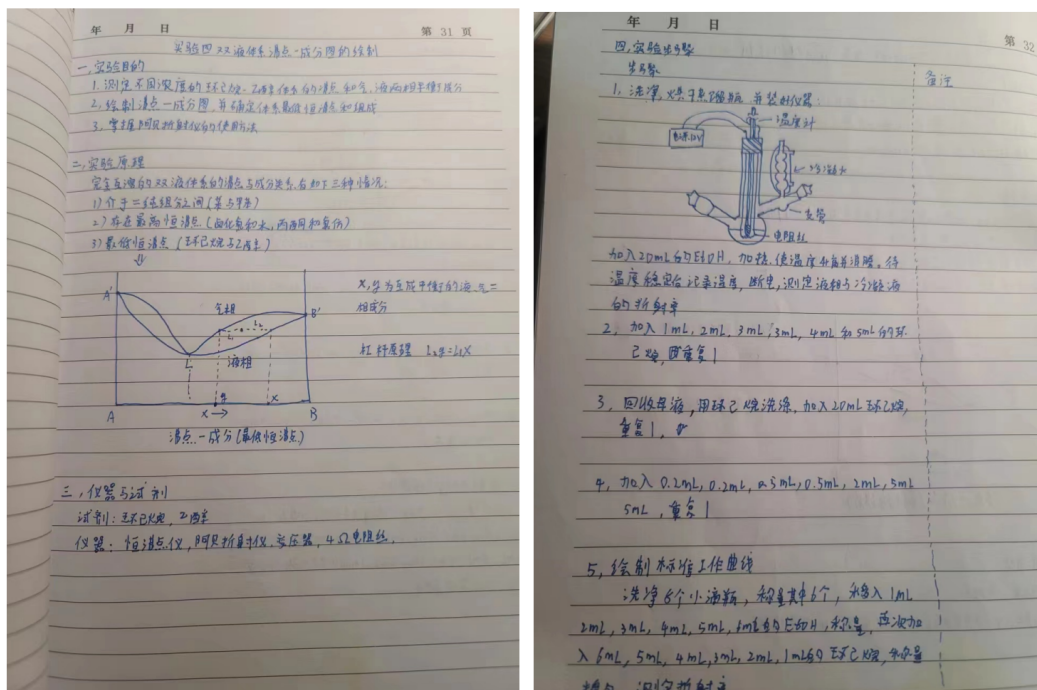 年 月 日 第 31 页
实验四 双液体系沸点-成分图的绘制
一、实验目的
1. 测定不同浓度的环己烷-乙醇体系的沸点和气、液两相平衡成分
2. 绘制沸点-成分图,并确定体系最低恒沸点和组成
3. 掌握阿贝折射仪的使用方法
二、实验原理
完全互溶的双液体系的沸点与成分关系,有如下三种情况:
1) 介于二纯组分之间 (苯与甲苯)
2) 存在最高恒沸点 (卤化氢和水, 丙酮和氯仿)
3) 最低恒沸点 (环己烷与乙醇)
A'
气相
L₁ L₂
B'
L
液相
A X→ x B
沸点-成分 (最低恒沸点)
x, 为互成平衡的液、气二
相成分
杠杆原理
三、仪器与试剂
试剂: 环己烷, 乙醇
仪器: 恒沸点仪, 阿贝折射仪, 变压器, 4Ω电阻丝.
年 月 日 第 32
四、实验步骤
步骤 备注
1. 洗净、烘干蒸馏瓶, 并装好仪器:
温度计
电源12V
冷凝
支管
电阻丝
加入20mL的EtOH, 加热, 使温度升高并沸腾。待
温度稳定后记录温度, 断电, 测定液相与冷凝液
的折射率
2. 加入1mL, 2mL, 3mL, 3mL, 4mL和5mL的环
己烷, 重复1
3. 回收母液, 用环己烷洗涤, 加入20mL环己烷,
重复1,
4. 加入0.2mL, 0.2mL, 0.5mL, 0.5mL, 2mL, 5mL
5mL, 重复1
5, 绘制标准工作曲线
洗净6个小滴瓶, 称量其中6个, 移入1mL
2mL, 3mL, 4mL, 5mL, 6mL的EtOH, 称量, 再次加
入6mL, 5mL, 4mL, 3mL, 2mL, 1mL的环己烷, 称量